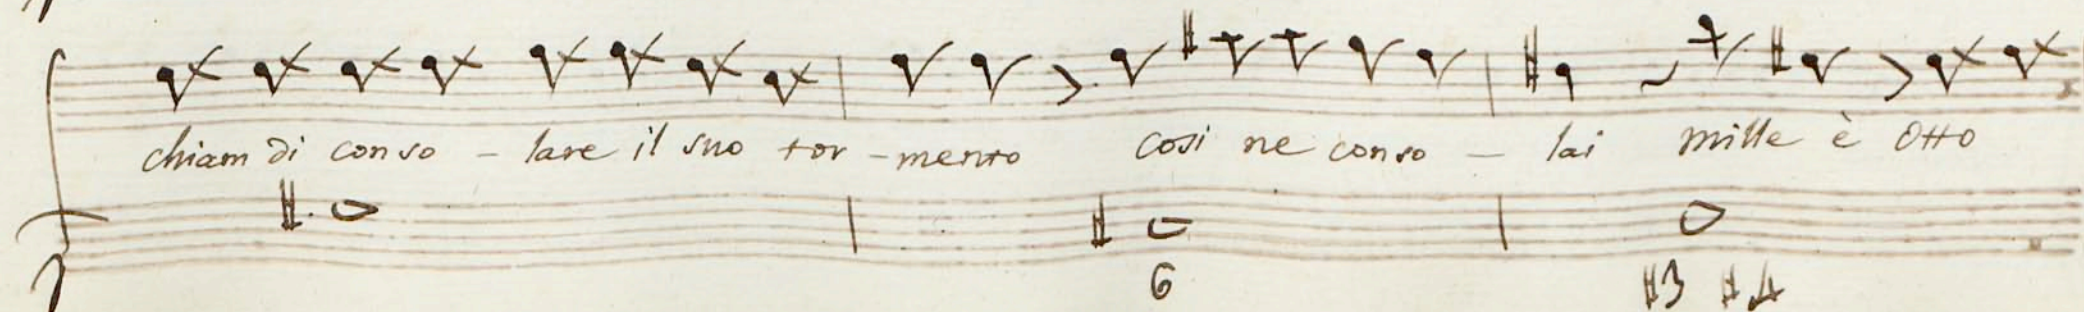 chiam di conso - lare il suo tor - mento così ne conso - lai mille è otto
6 #3 #4